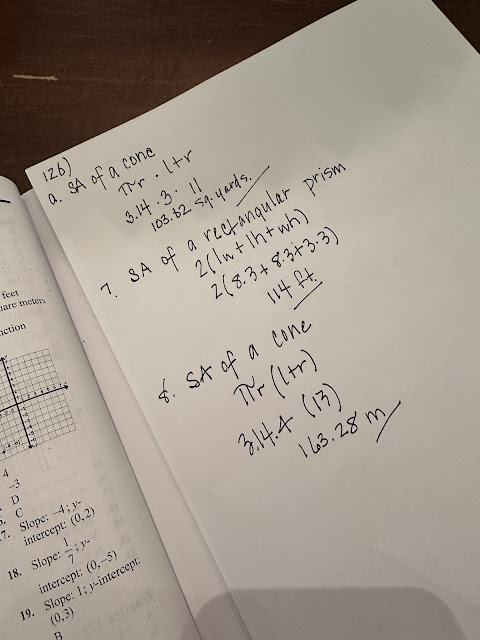 126)
a. SA of a cone
πr · l+r
3.14 · 3 · 11
103.62 sq. yards.
7. SA of a rectangular prism
2(lw + lh + wh)
2(8·3 + 8·3 + 3·3)
114 ft.
8. SA of a cone
πr (l+r)
3.14·4 (13)
163.28 m
feet
uare meters
4
-3
D
C
7. Slope: -4; y-
intercept: (0,2)
18. Slope: 1/7; y-
intercept: (0,-5)
19. Slope: 1; y-intercept:
(0,3)
B